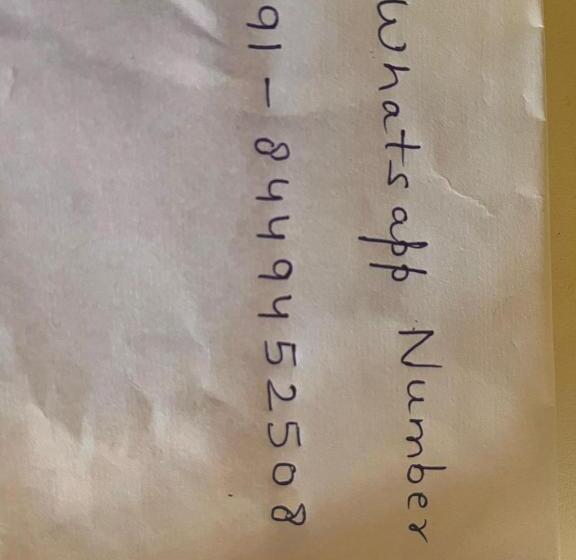 Whatsapp Number
91 - 8449452508